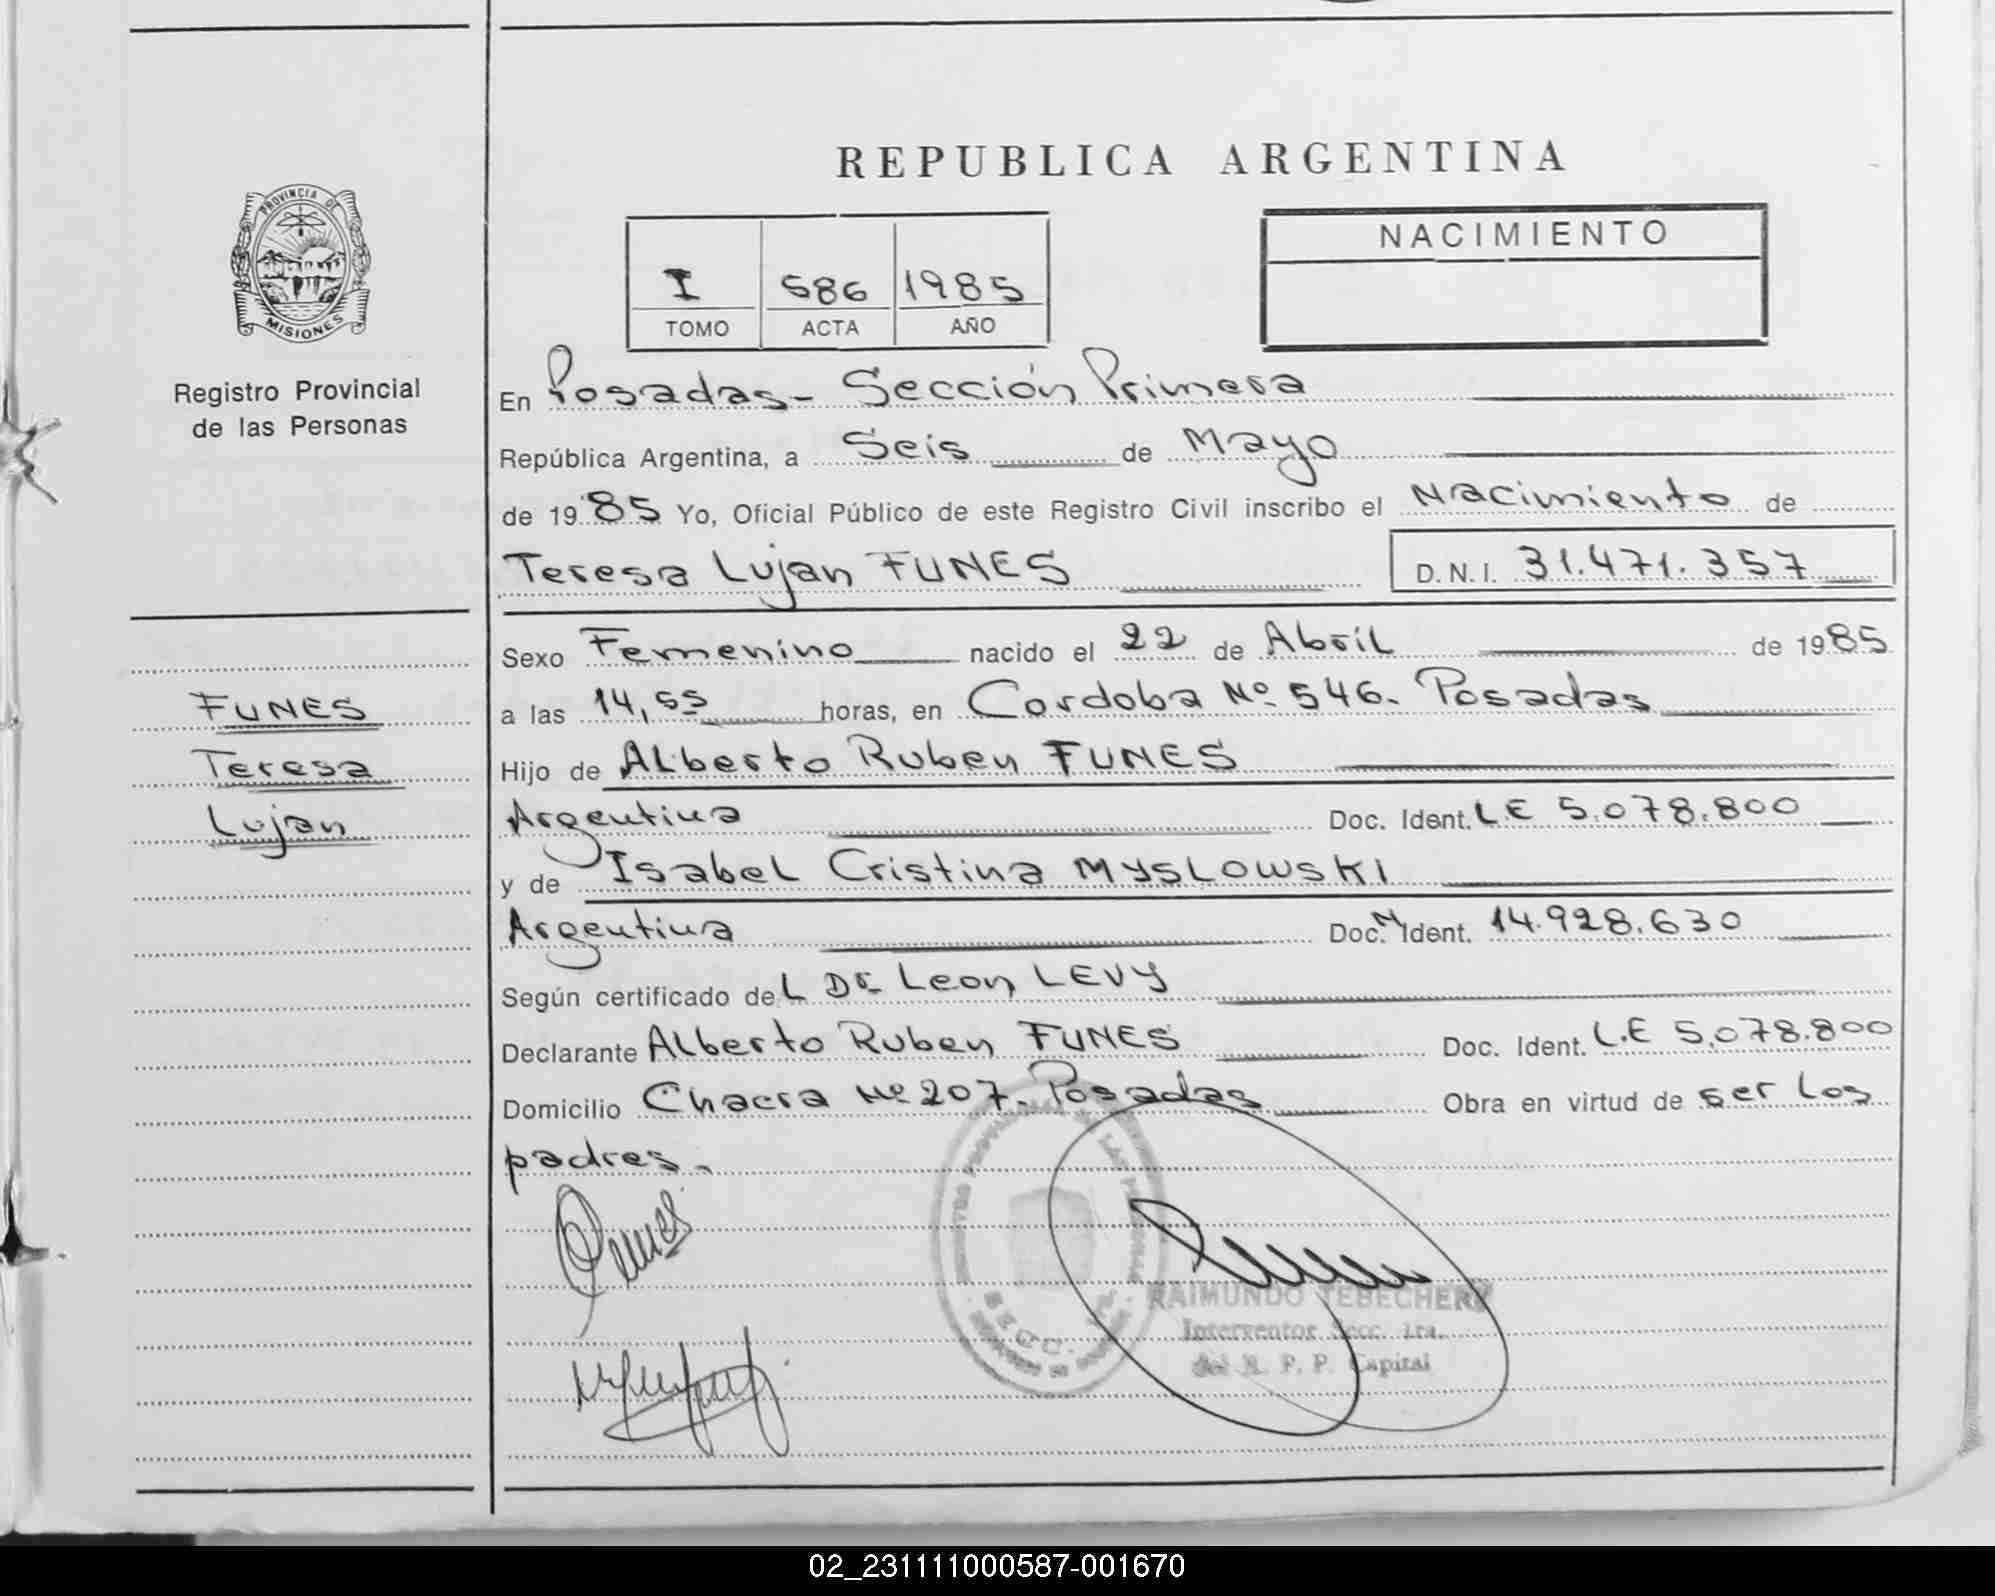 REPUBLICA ARGENTINA
PROVINCIA DE
MISIONES
Registro Provincial
de las Personas
I 586 1985
TOMO ACTA AÑO
NACIMIENTO
En Posadas- Sección Primera
República Argentina, a Seis de Mayo
de 1985 Yo, Oficial Público de este Registro Civil inscribo el Nacimiento de
Teresa Lujan FUNES D.N.I. 31.471.357
Sexo Femenino nacido el 22 de Abril de 1985
a las 14,55 horas, en Cordoba Nº 546. Posadas
Hijo de Alberto Ruben FUNES
Argentina Doc. Ident. LE 5.078.800
y de Isabel Cristina MYSLOWSKI
Argentina Doc. Ident. 14.928.630
Según certificado del Dr Leon LEVY
Declarante Alberto Ruben FUNES Doc. Ident. L.E 5.078.800
Domicilio Chacra Nº 207. Posadas Obra en virtud de ser los
padres.
FUNES
Teresa
Lujan
RAIMUNDO TEBECHERY
Interventor Secc. 1ra.
del R. P. P. Capital
02_231111000587-001670